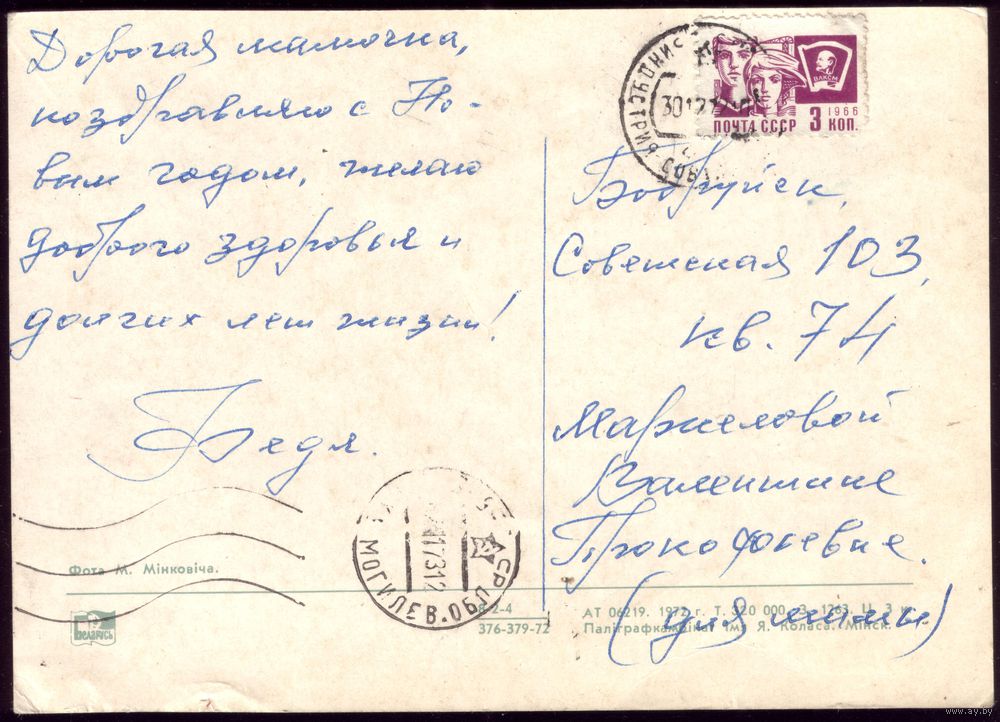 Дорогая мамочка,
поздравляю с Но-
вым годом, желаю
доброго здоровья и
долгих лет жизни!
Федя.
ВЛКСМ
1966
ПОЧТА СССР 3 КОП.
30 12
Бобруйск,
Советская 103,
кв. 74
Маржеловой
Валентине
Прокофьевне.
(для мамы)
МОГИЛЕВ. ОБЛ
Фота М. Мінковіча.
БЕЛАРУСЬ
8-2-4
376-379-72
АТ 06219. 1972 г. Т. 320 000. З. 1263. Ц. 3 к.
Паліграфкамбінат імя Я. Коласа. Мінск.
www.ay.by